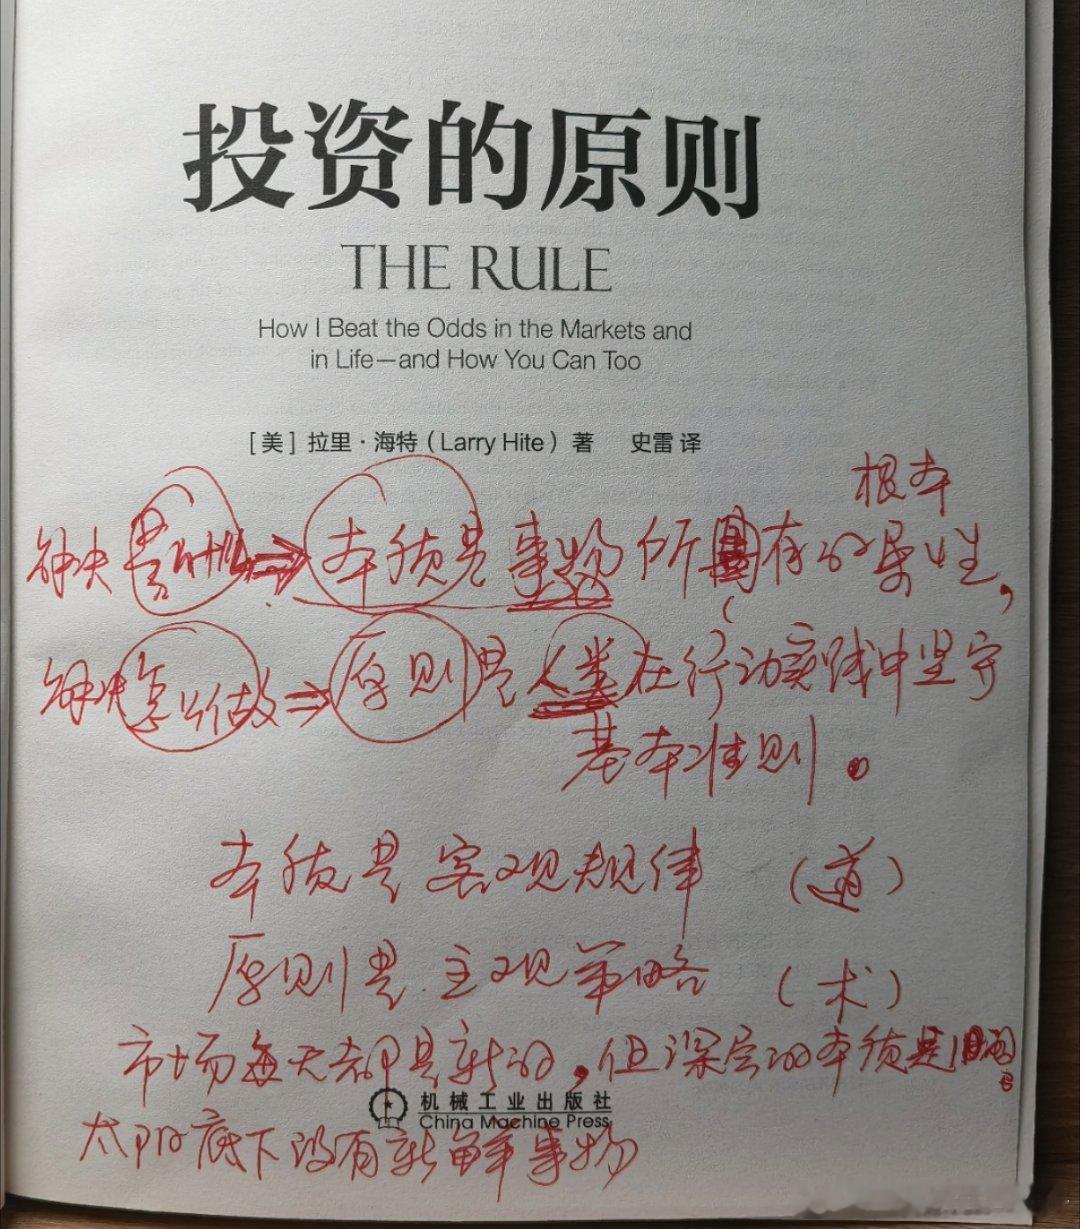 投资的原则
THE RULE
How I Beat the Odds in the Markets and
in Life—and How You Can Too
［美］拉里·海特（Larry Hite）著 史雷 译
根本
解决是什么⇒本质是事物所固有的属性，
解决怎么做⇒原则是人类在行动实践中坚守
基本准则。
本质是客观规律 （道）
原则是主观策略 （术）
市场每天都是新的，但深层的本质是旧的。
机械工业出版社
China Machine Press
太阳底下没有新鲜事物